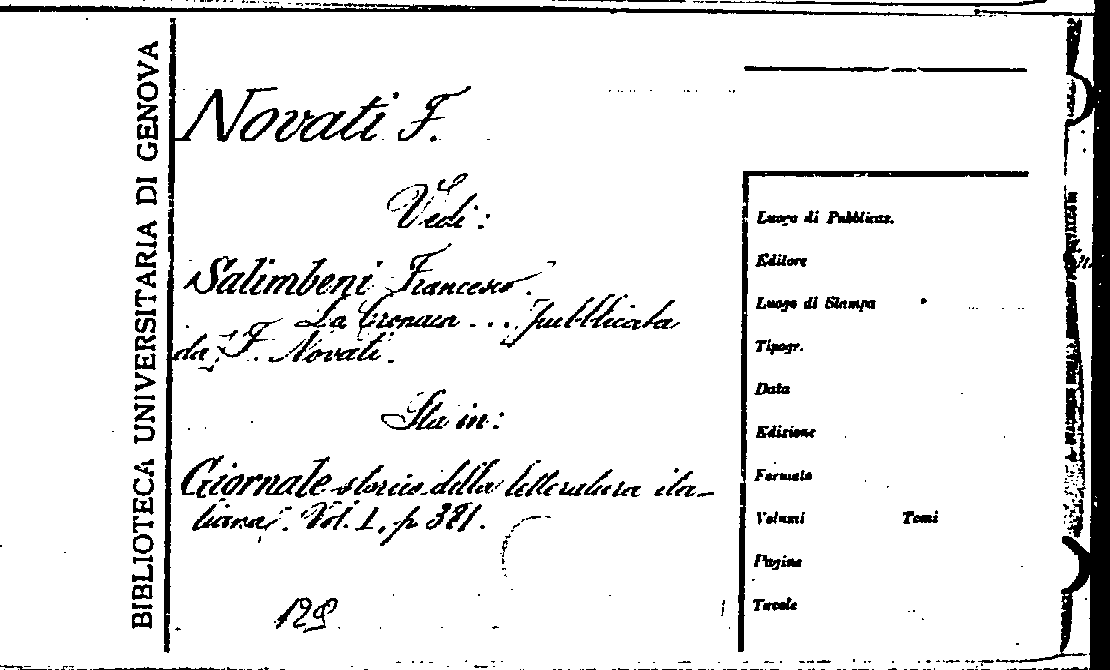 BIBLIOTECA UNIVERSITARIA DI GENOVA
Novati F.
Vedi:
Salimbeni Francesco.
La Cronaca ... pubblicata
da F. Novati.
Sta in:
Giornale storico della letteratura ita-
liana. Vol. 1, p 381.
129
Luogo di Pubblicaz.
Editore
Luogo di Stampa
Tipogr.
Data
Edizione
Formato
Volumi Tomi
Pagine
Tavole